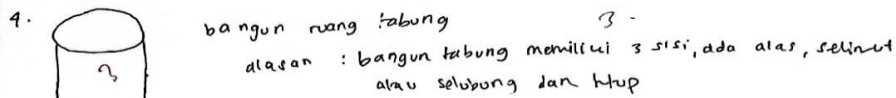 4. bangun ruang tabung 3.
alasan : bangun tabung memiliki 3 sisi, ada alas, selimut
atau selubung dan tutup